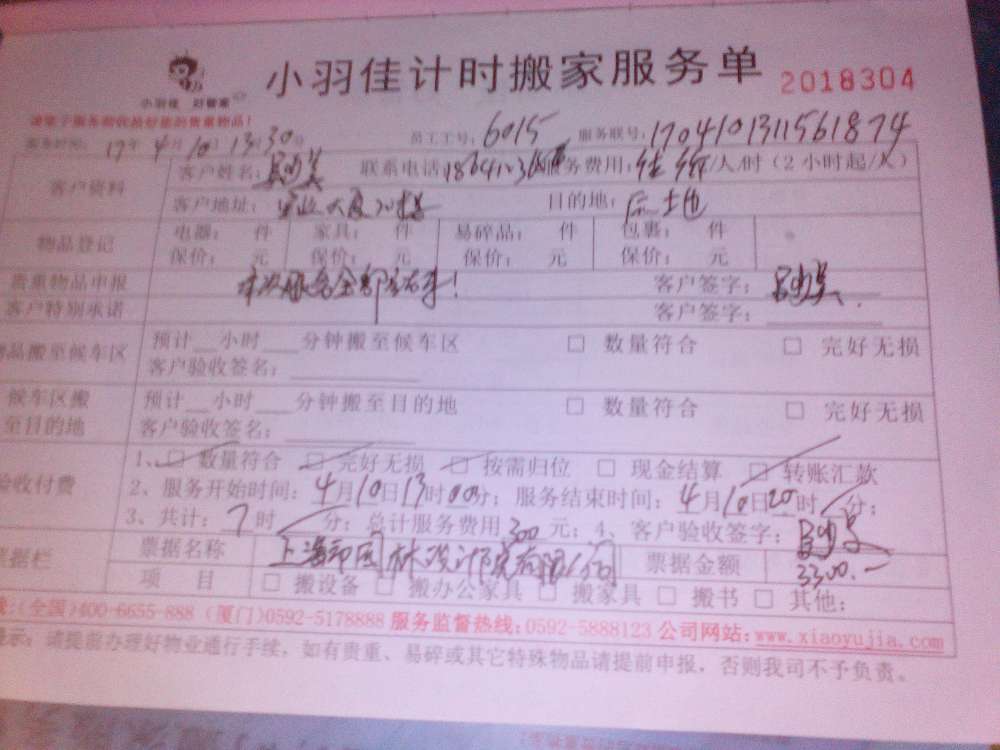 小羽佳计时搬家服务单 2018304
小羽佳 好管家
服务时间：17年4月10日13时30分 员工工号：6015 服务联号：1704101311561874
客户资料 客户姓名： 联系电话 服务费用： /人/时（2小时起/人）
客户地址： 目的地：
物品登记 电器： 件 家具： 件 易碎品： 件 包裹： 件
保价： 元 保价： 元 保价： 元 保价： 元
贵重物品申报 本次服务全部 ！ 客户签字：
客户特别承诺 客户签字：
物品搬至候车区 预计__小时___分钟搬至候车区 □ 数量符合 □ 完好无损
客户验收签名：
候车区搬至目的地 预计__小时___分钟搬至目的地 □ 数量符合 □ 完好无损
客户验收签名：
验收付费 1、□ 数量符合 □ 完好无损 □ 按需归位 □ 现金结算 □ 转账汇款
2、服务开始时间：4月10日13时00分；服务结束时间：4月10日20时 分；
3、共计：7时 分；总计服务费用 300元；4、客户验收签字：
票据栏 票据名称 上海 园林设计院有限公司 票据金额 3300.—
项 目 □ 搬设备 □ 搬办公家具 □ 搬家具 □ 搬书 □ 其他：
：(全国)400-6655-888 (厦门)0592-5178888 服务监督热线：0592-5888123 公司网站：www.xiaoyujia.com
提示：请提前办理好物业通行手续，如有贵重、易碎或其它特殊物品请提前申报，否则我司不予负责。